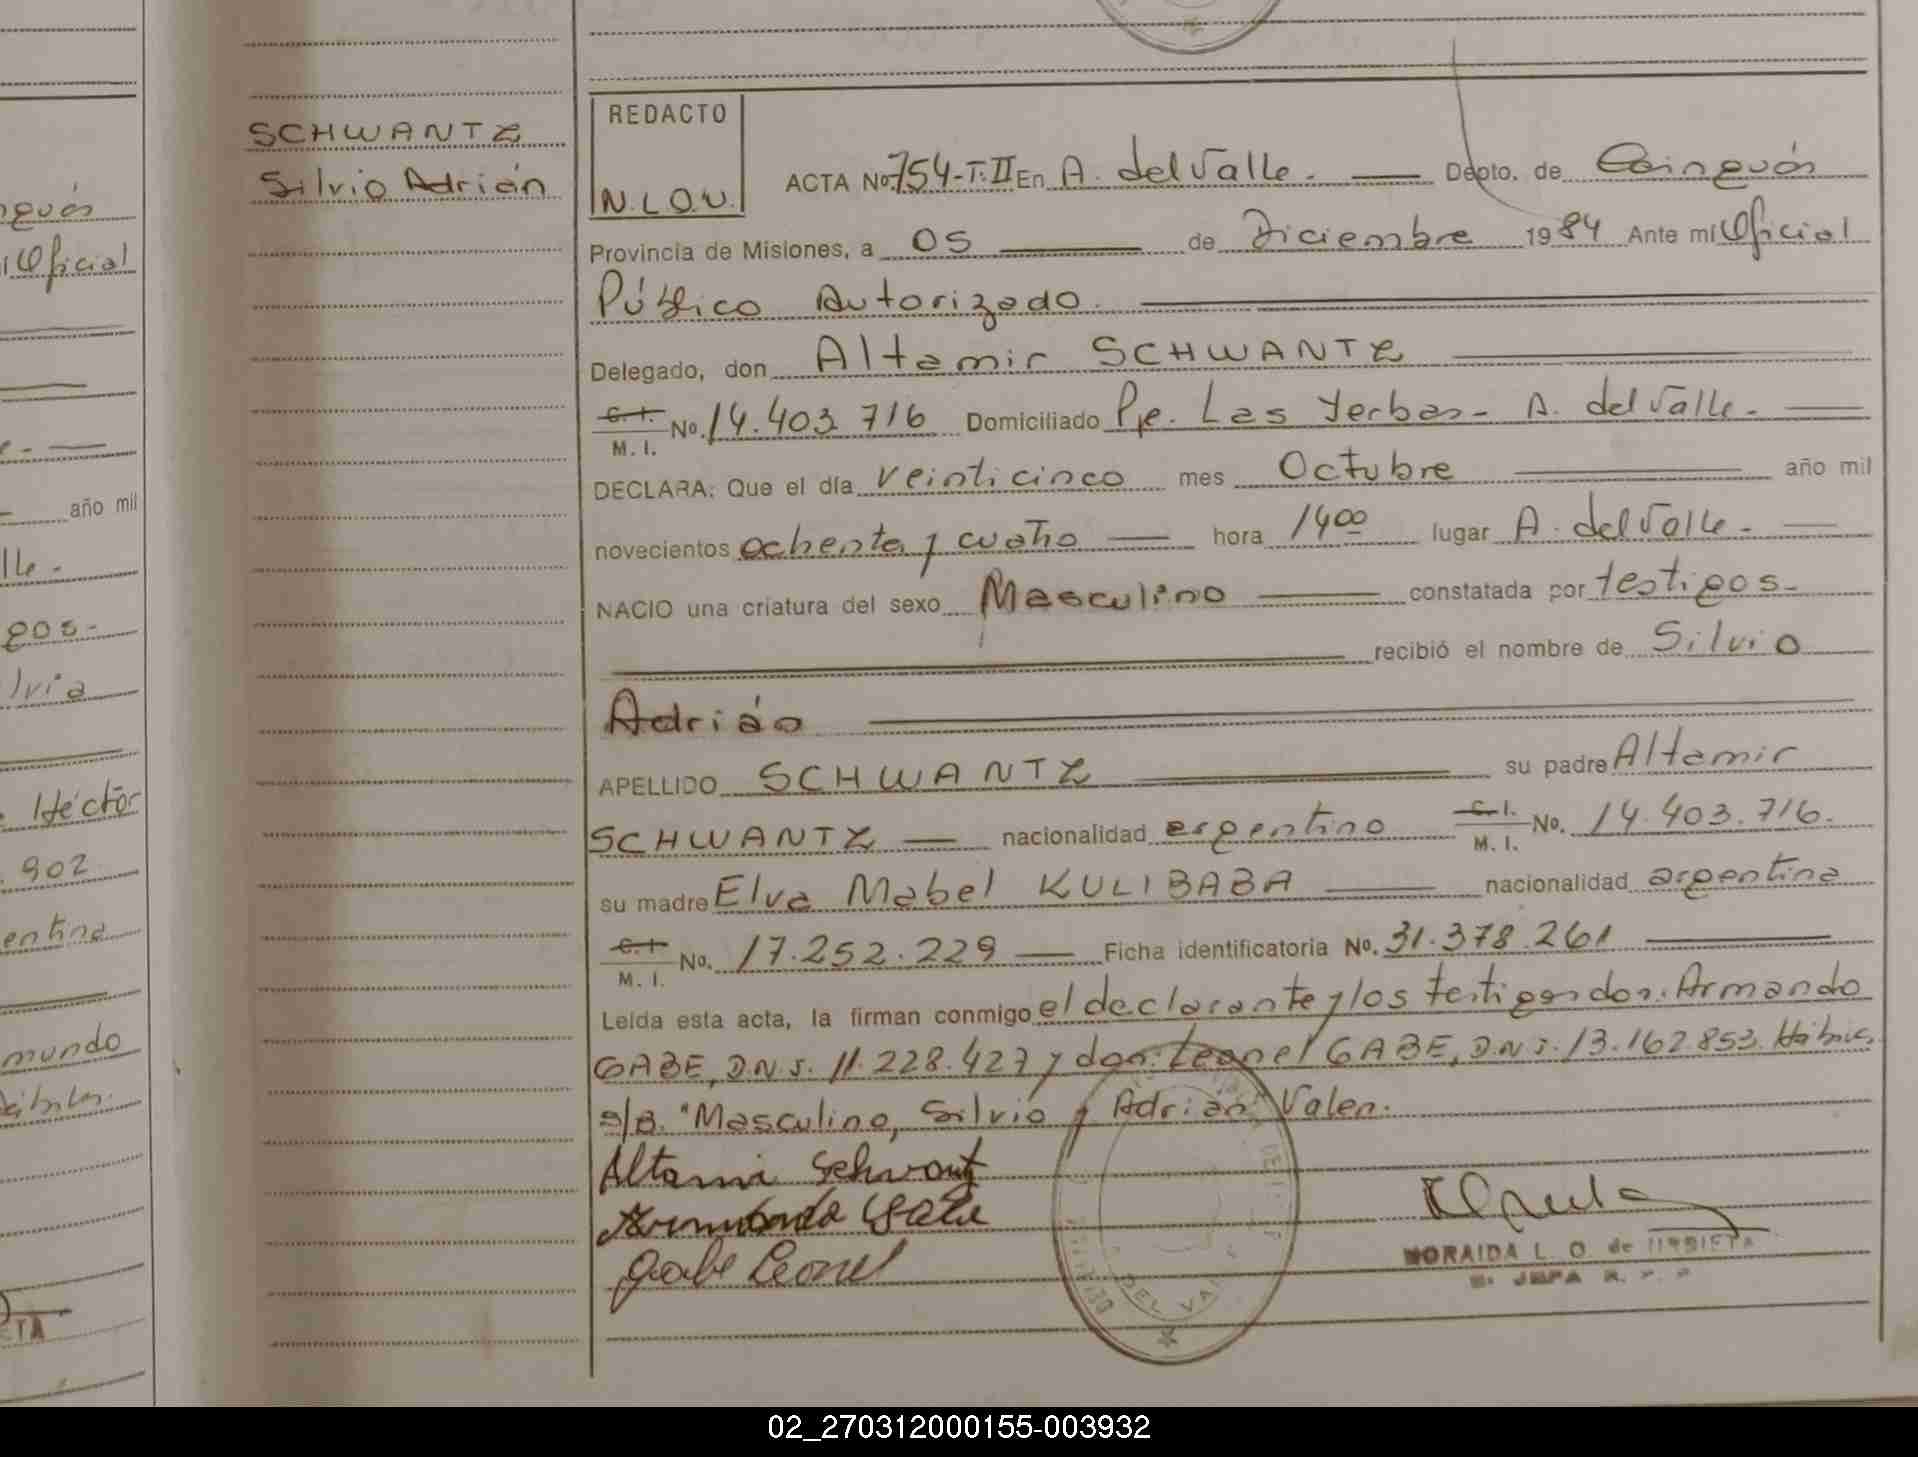 SCHWANTZ
Silvio Adrián
REDACTO
N.L.O.U.
ACTA No. 754-T.II En A. del Valle. Depto. de Cainguás
Provincia de Misiones, a 05 de Diciembre 1984 Ante mí Oficial
Público Autorizado.
Delegado, don Altamir SCHWANTZ
C. I.
M. I. No. 14.403.716 Domiciliado Pje. Las Yerbas - A. del Valle.
DECLARA: Que el día veinticinco mes Octubre año mil
novecientos ochenta y cuatro hora 14 00 lugar A. del Valle.
NACIO una criatura del sexo Masculino constatada por testigos-
recibió el nombre de Silvio
Adrián
APELLIDO SCHWANTZ su padre Altamir
SCHWANTZ nacionalidad argentino C. I.
M. I. No. 14.403.716.
su madre Elva Mabel KULIBABA nacionalidad argentina
C. I.
M. I. No. 17.252.229 Ficha identificatoria No. 31.378.261
Leída esta acta, la firman conmigo el declarante y los testigos don: Armando
GABE, D.N.I. 11.228.427 y don: Leonel GABE, D.N.I. 13.162.853. Hábiles.
s/B. "Masculino, Silvio y Adrián" Valen.
Altamir Schwantz
Armando Gabe
Gabe Leonel
NORAIDA L. O. de URBIETA
DEL VA
guás
Oficial
año mil
lle.
gos-
lvia
Héctor
902
entina
mundo
ETA
02_270312000155-003932